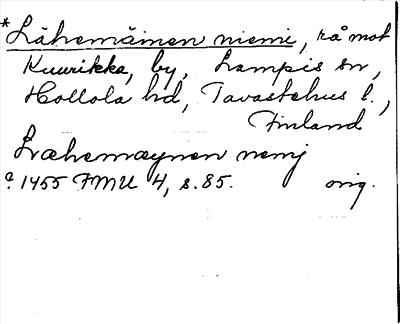 *Lähemäinen niemi, rå mot
Kuurikka, by, Lampis sn,
Hollola hd, Tavastehus l.,
Finland
Læhemæynen nemj
a. 1455 FMU 4, s. 85. orig.